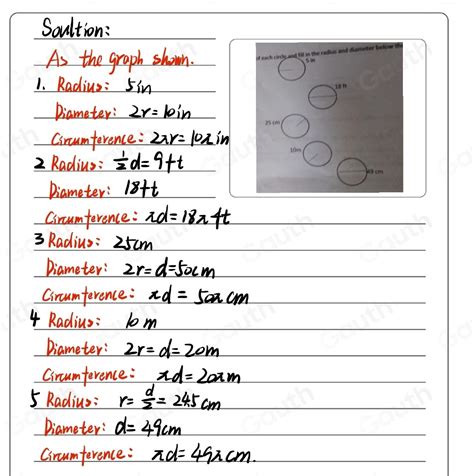 Soultion:
As the graph shown.
1. Radius: 5in
Diameter: 2r=10in
Circumference: 2πr=10π in
2 Radius: ½d=9ft
Diameter: 18ft
Circumference: πd=18π ft
3 Radius: 25cm
Diameter: 2r=d=50cm
Circumference: πd=50π cm
4 Radius: 10 m
Diameter: 2r=d=20m
Circumference: πd=20πm
5 Radius: r=d/2=24.5cm
Diameter: d=49cm
Circumference: πd=49π cm.
of each circle and fill in the radius and diameter below the
5 in
18 ft
25 cm
10m
49 cm
Gauth